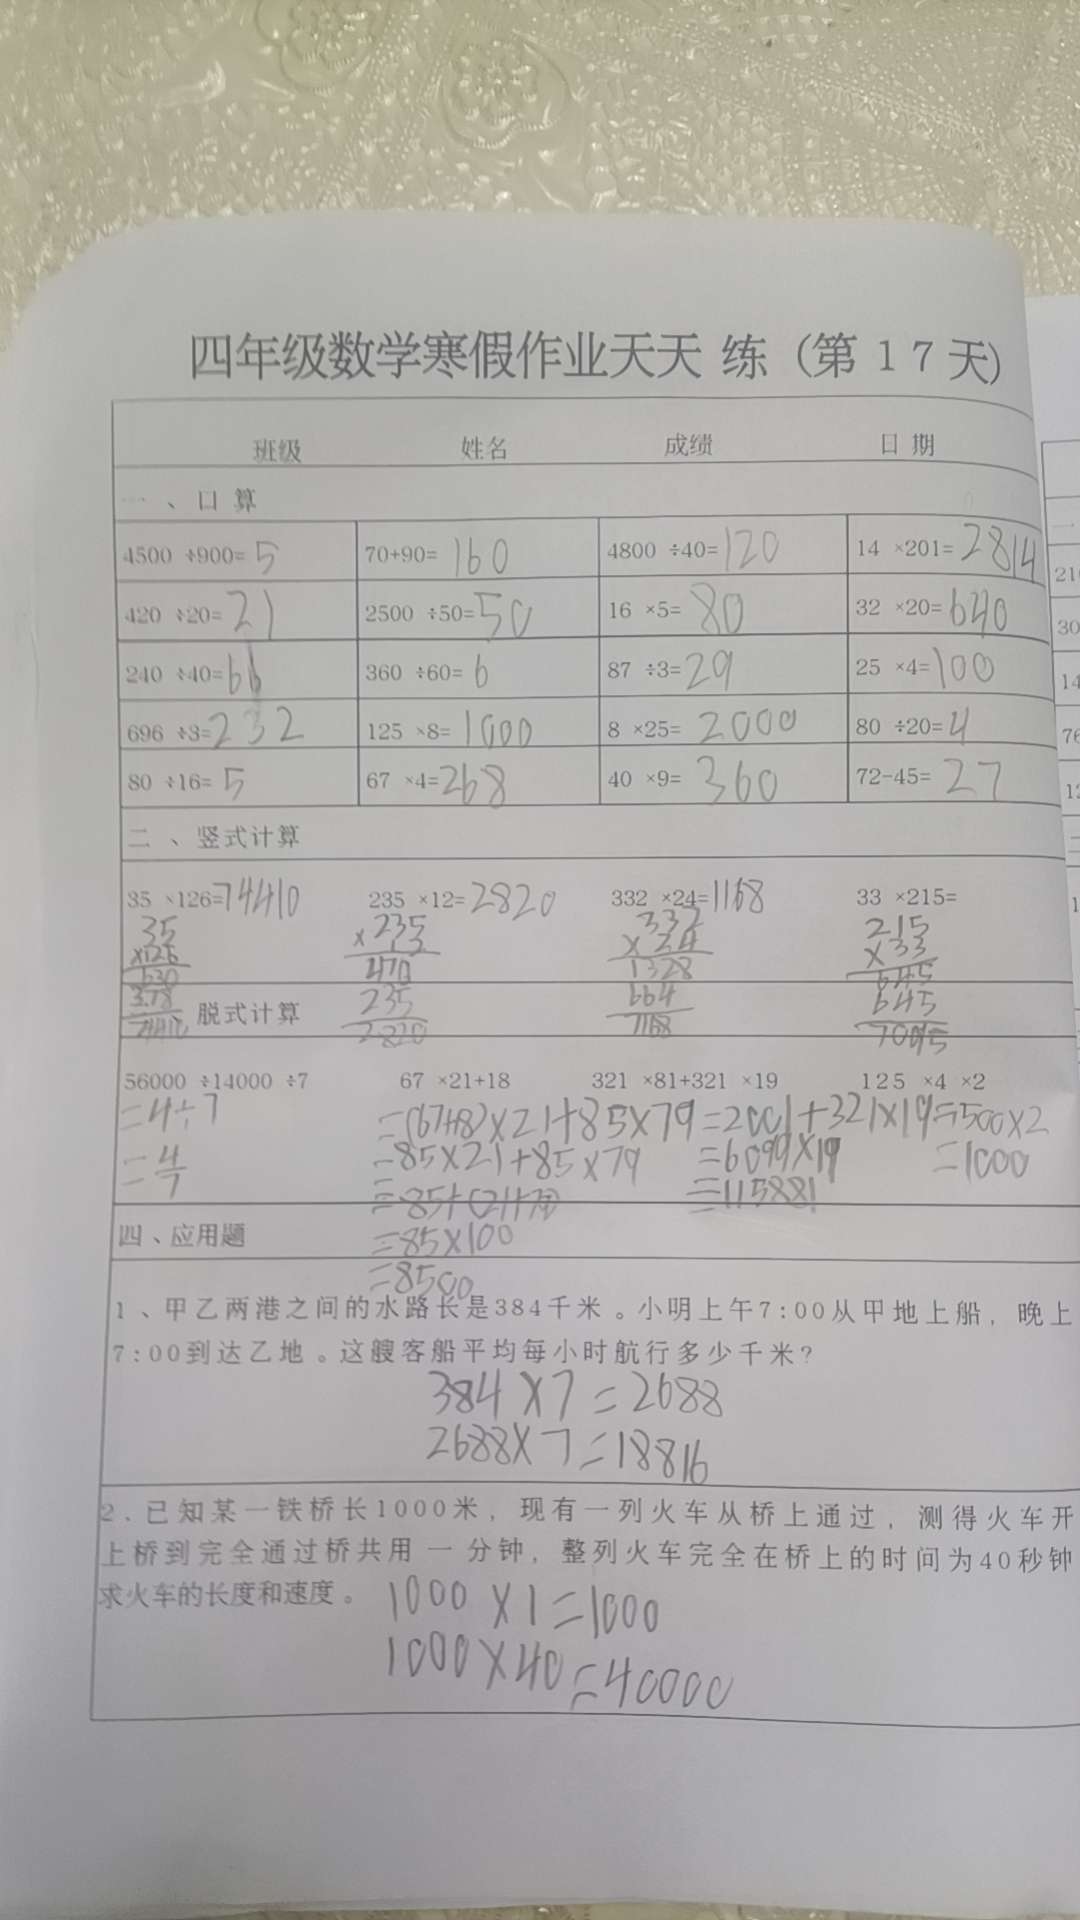 四年级数学寒假作业天天 练（第 17天）
班级 姓名 成绩 日 期
一 、口 算
4500 ÷900=5 70+90=160 4800 ÷40=120 14 ×201=2814
420 ÷20=21 2500 ÷50=50 16 ×5=80 32 ×20=640
240 ÷40=66 360 ÷60=6 87 ÷3=29 25 ×4=100
696 ÷3=232 125 ×8=1000 8 ×25=2000 80 ÷20=4
80 ÷16=5 67 ×4=268 40 ×9=360 72-45=27
二 、竖式计算
35 ×126=74410 235 ×12=2820 332 ×24=1168 33 ×215=
35 235 332 215
×126 ×12 ×24 ×33
630 470 1328 645
378 235 664 645
2820 7168 7095
、脱式计算
56000 ÷14000 ÷7 67 ×21+18 321 ×81+321 ×19 125 ×4 ×2
=4÷7 =(67+18)×21+85×79 =2001+321×19 =500×2
=4/7 =85×21+85×79 =6099×19 =1000
=85+(21+79) =115881
=85×100
=8500
四、应用题
1、甲乙两港之间的水路长是384千米。小明上午7:00从甲地上船，晚上
7:00到达乙地。这艘客船平均每小时航行多少千米?
384×7=2688
2688×7=18816
2.已知某一铁桥长1000米，现有一列火车从桥上通过，测得火车开
上桥到完全通过桥共用 一 分钟，整列火车完全在桥上的时间为40秒钟
求火车的长度和速度。
1000×1=1000
1000×40=40000
一
210
30
14
76
12
二
1